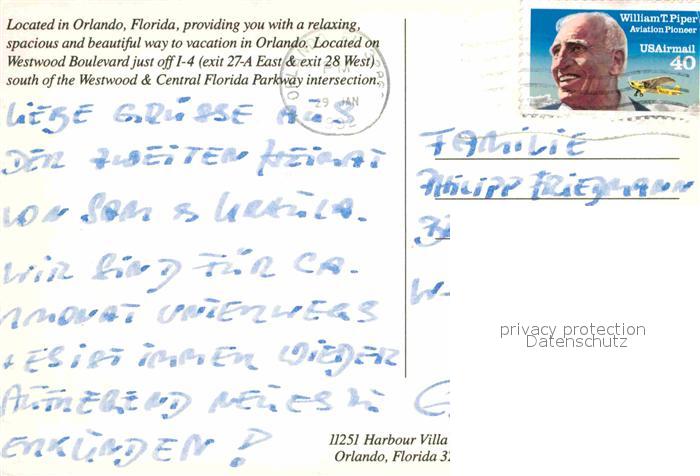 Located in Orlando, Florida, providing you with a relaxing,
spacious and beautiful way to vacation in Orlando. Located on
Westwood Boulevard just off I-4 (exit 27-A East & exit 28 West)
south of the Westwood & Central Florida Parkway intersection.
William T. Piper
Aviation Pioneer
USAirmail
40
29 JAN
LIEBE GRÜSSE AUS
DER ZWEITEN HEIMAT
VON SAM & URSULA.
WIR SIND FÜR CA.
MONAT UNTERWEGS
+ ES IST IMMER WIEDER
AUFREGEND NEUES ZU
ERKUNDEN!
FAMILIE
PHILIPP
privacy protection
Datenschutz
11251 Harbour Villa
Orlando, Florida 32